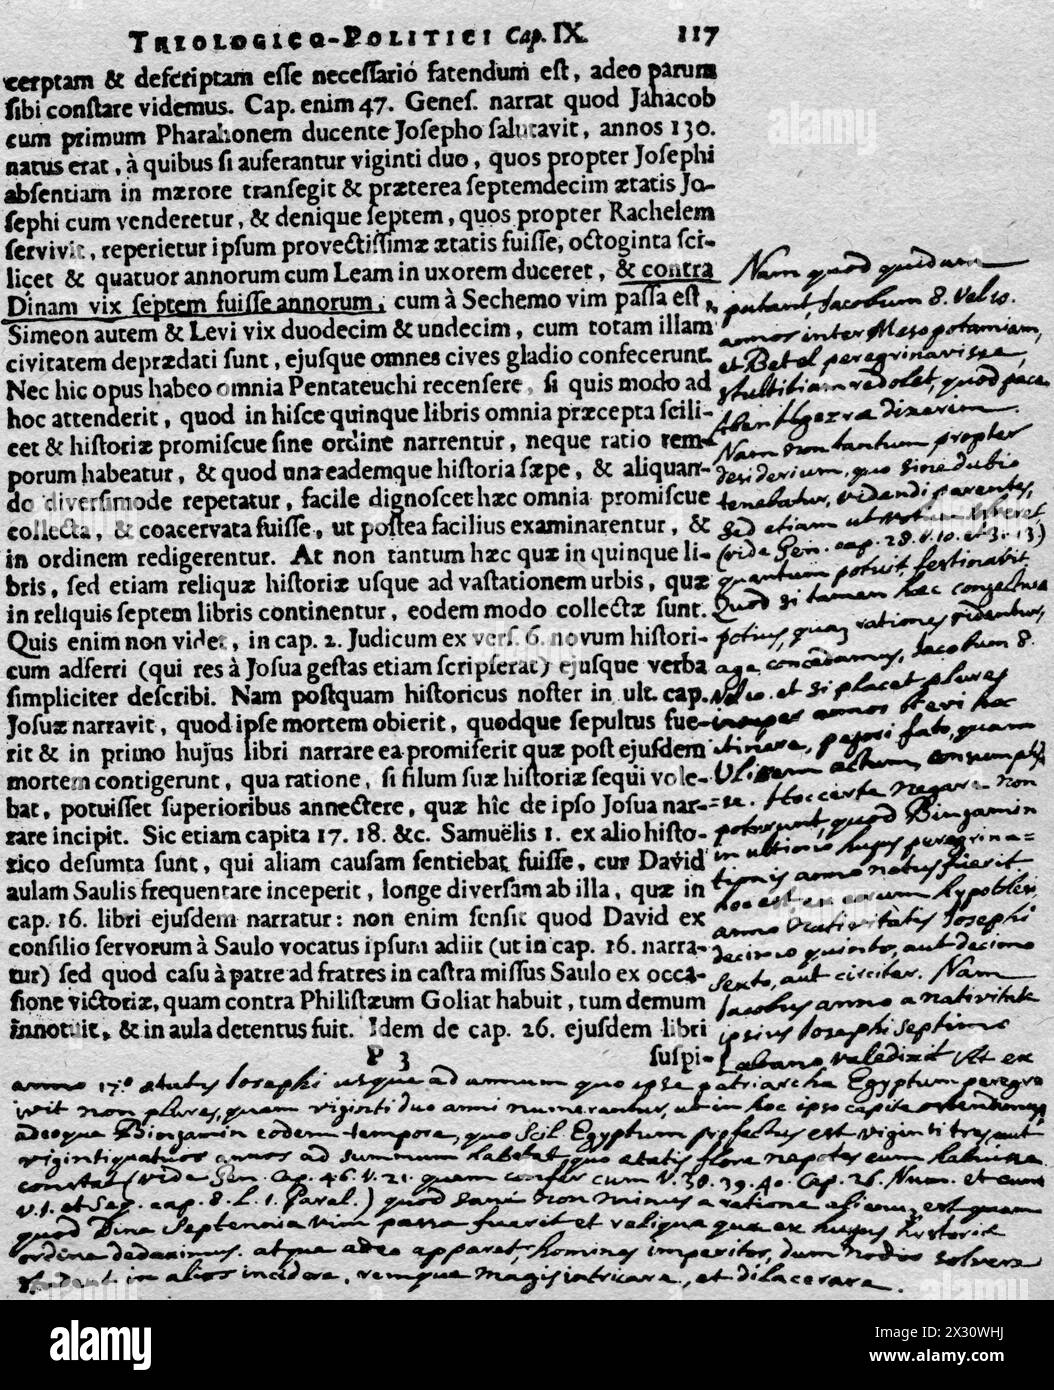 THEOLOGICO-POLITICI Cap. IX. 117
cerptam & deſcriptam eſſe neceſſariò fatendum eſt, adeo parum
ſibi conſtare videmus. Cap. enim 47. Geneſ. narrat quod Jahacob
cum primum Pharahonem ducente Joſepho ſalutavit, annos 130.
natus erat, à quibus ſi auferantur viginti duo, quos propter Joſephi
abſentiam in mærore tranſegit & præterea ſeptemdecim ætatis Jo-
ſephi cum venderetur, & denique ſeptem, quos propter Rachelem
ſervivit, reperietur ipſum provectiſſimæ ætatis fuiſſe, octoginta ſci-
licet & quatuor annorum cum Leam in uxorem duceret, & contra
Dinam vix ſeptem fuiſſe annorum, cum à Sechemo vim paſſa eſt,
Simeon autem & Levi vix duodecim & undecim, cum totam illam
civitatem deprædati ſunt, ejuſque omnes cives gladio confecerunt.
Nec hic opus habeo omnia Pentateuchi recenſere, ſi quis modo ad
hoc attenderit, quod in hiſce quinque libris omnia præcepta ſcili-
cet & hiſtoriæ promiſcue ſine ordine narrentur, neque ratio tem-
porum habeatur, & quod una eademque hiſtoria ſæpe, & aliquan-
do diverſimode repetatur, facile dignoſcet hæc omnia promiſcue
collecta, & coacervata fuiſſe, ut poſtea facilius examinarentur, &
in ordinem redigerentur. At non tantum hæc quæ in quinque li-
bris, ſed etiam reliquæ hiſtoriæ uſque ad vaſtationem urbis, quæ
in reliquis ſeptem libris continentur, eodem modo collectæ ſunt.
Quis enim non videt, in cap. 2. Judicum ex verſ. 6. novum hiſtori-
cum adferri (qui res à Joſua geſtas etiam ſcripſerat) ejuſque verba
ſimpliciter deſcribi. Nam poſtquam hiſtoricus noſter in ult. cap.
Joſuæ narravit, quod ipſe mortem obierit, quodque ſepultus fue-
rit & in primo hujus libri narrare ea promiſerit quæ poſt ejuſdem
mortem contigerunt, qua ratione, ſi filum ſuæ hiſtoriæ ſequi vole-
bat, potuiſſet ſuperioribus annectere, quæ hîc de ipſo Joſua nar-
rare incipit. Sic etiam capita 17. 18. &c. Samuëlis 1. ex alio hiſto-
rico deſumta ſunt, qui aliam cauſam ſentiebat fuiſſe, cur David
aulam Saulis frequentare inceperit, longe diverſam ab illa, quæ in
cap. 16. libri ejuſdem narratur: non enim ſenſit quod David ex
conſilio ſervorum à Saulo vocatus ipſum adiit (ut in cap. 16. narra-
tur) ſed quod caſu à patre ad fratres in caſtra miſſus Saulo ex occa-
ſione victoriæ, quam contra Philiſtæum Goliat habuit, tum demum
innotuit, & in aula detentus fuit. Idem de cap. 26. ejuſdem libri
P 3 ſuſpi-
Nam quod quidam
putant, Jacobum 8. vel 10.
annos inter Mesopotamiam,
et Betel peregrinavisse
stultitiam redolet, quod pace
Aben Hgezræ dixerim.
Nam non tantum propter
desiderium, quo sine dubio
tenebatur, videndi parentes,
sed etiam ut
(vide Gen. cap. 28. v. 10. et 31. 13.)
quantum potuit, festinavit
Quod si tamen hæc conjectura
potius, quam rationes videntur,
age concedamus, Jacobum 8.
vel 10. et si placet plures
insuper annos brevi hoc
itinere, pejori fato, quam
Ulissem actum, consumpsis
se. Hoc certe negare non
poterunt, quod Binjamin
in ultimo hujus peregrina=
tionis anno natus fuerit
hoc est ex eorum hypothesi
anno nativitatis Josephi
decimo quinto, aut decimo
sexto, aut circiter. Nam
Jacobus anno a nativitate
ipsius Josephi septimo
Labano valedixit At ex
anno 17.° ætatis Josephi usque ad annum quo ipse patriarcha Egyptum peregri
vit non plures, quam viginti duo anni numerantur, ut in hoc ipso capite ostendimus
adeoque Binjamin eodem tempore, quo scil. Egyptum profectus est viginti tres, aut
vigintiquatuor annos ad summum habebat quo ætatis flore nepotes eum habuisse
constat (vide Gen. Cap. 46. v. 21. quem confer cum v. 38. 39. 40. Cap. 26. Num. et cum
v. 1. et seq. cap. 8. L. 1. Paral.) quod sane non minus a ratione alienum est quam
quod Dina septennis vim passa fuerit et reliqua quæ ex hujus historiæ
ordine deduximus. atque adeo apparet, homines imperitos, dum nodos solvere
student, in alios incidere, remque magis intricare, et dilacerare.
alamy
Image ID: 2X30WHJ
www.alamy.com